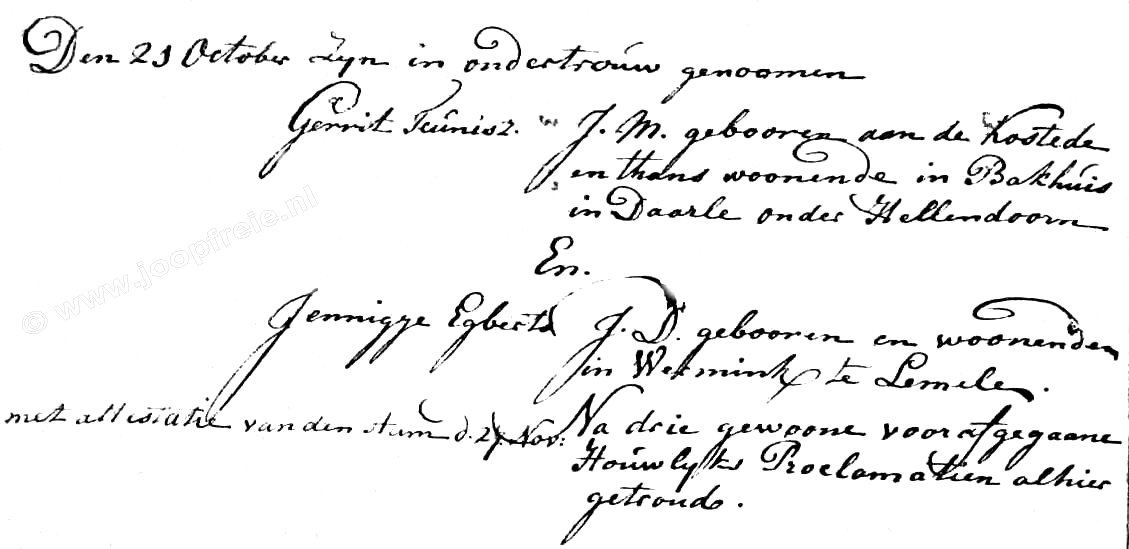 Den 21 October Zyn in ondertrouw genoomen
Gerrit Teunisz. J. M. gebooren aan de Kostede
en thans woonende in Bakhuis
in Daarle onder Hellendoorn
En.
Jennigje Egberts J. D. gebooren en woonenden
in Wermink te Lemele.
met attestatie van den Ham d. Nov: Na drie gewoone voor afgegaane
Houwlyks Proclamatien alhier
getroud.
© www.joopfreie.nl